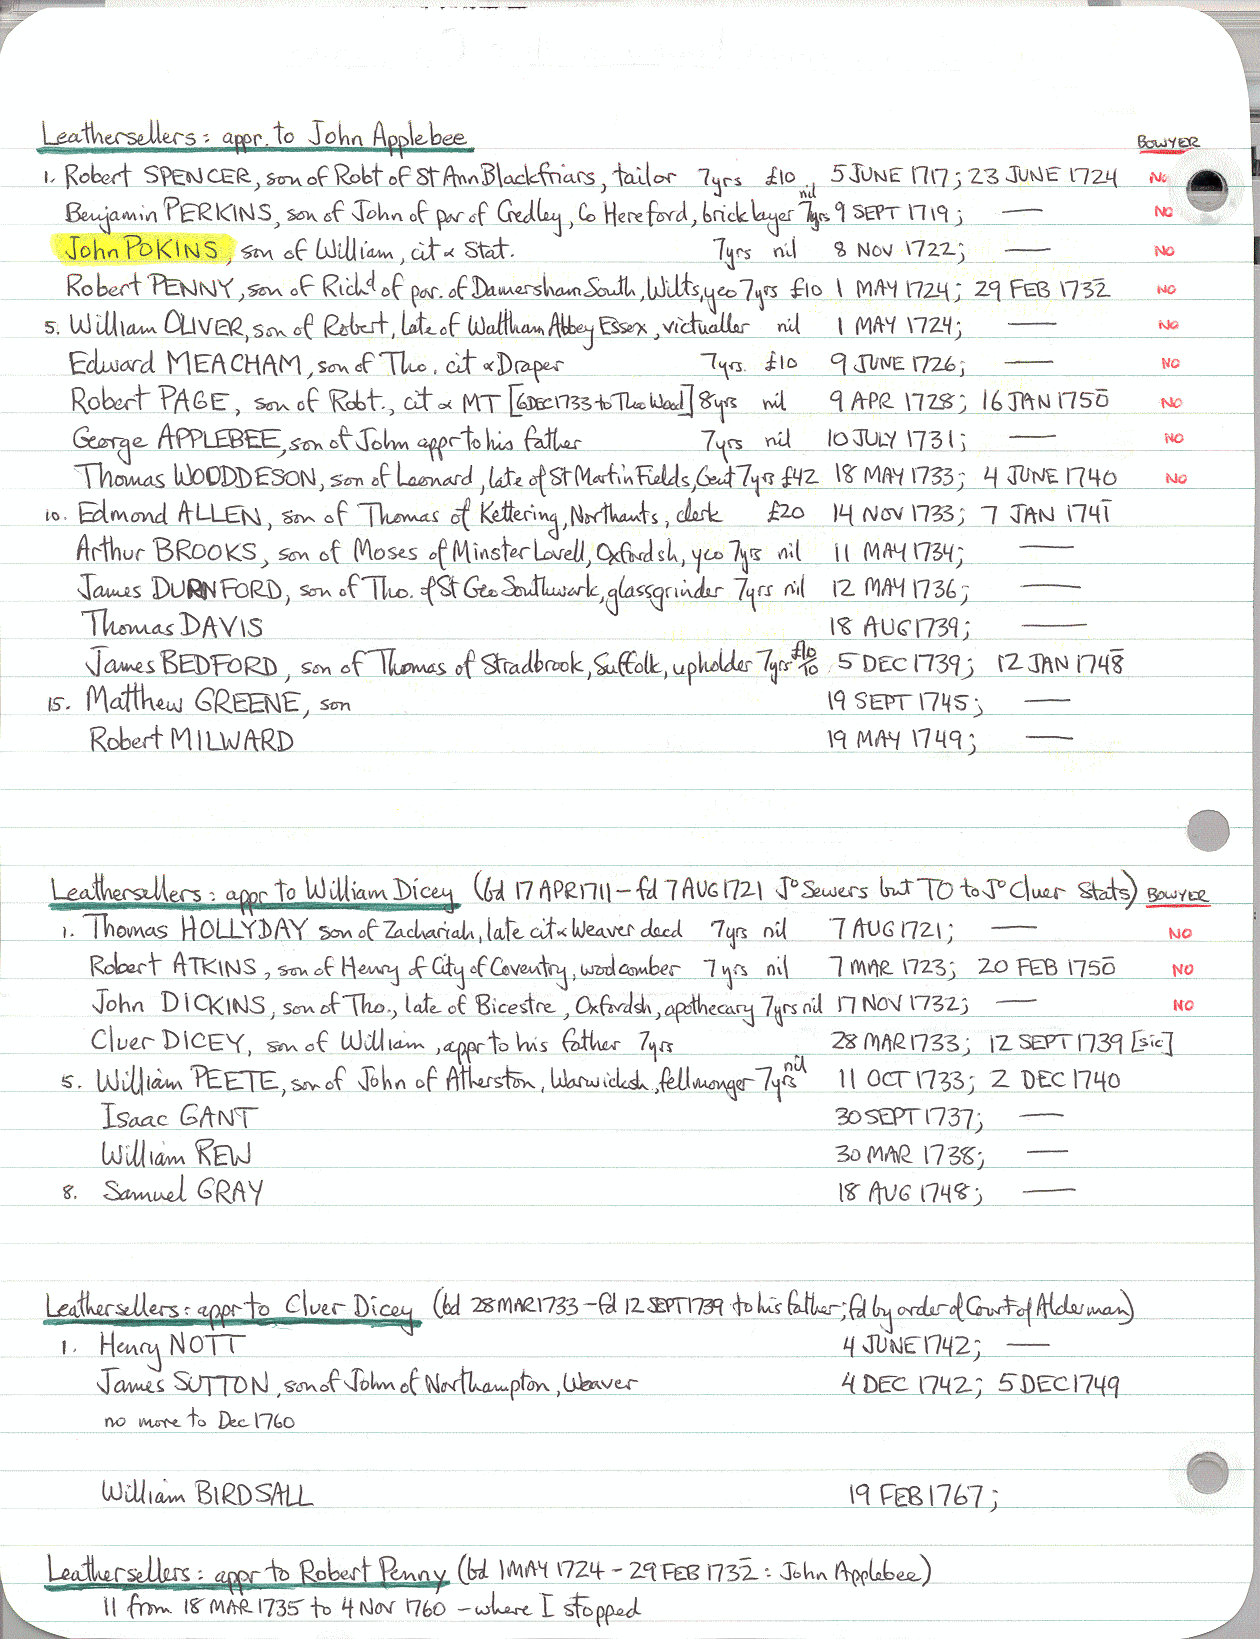 Leathersellers: appr. to John Applebee BOWYER
1. Robert SPENCER, son of Robt of St Ann Blackfriars, tailor 7yrs £10 5 JUNE 1717; 23 JUNE 1724 NO
Benjamin PERKINS, son of John of par of Credley, Co Hereford, bricklayer 7yrs nil 9 SEPT 1719; — NO
John POKINS, son of William, cit & Stat. 7yrs nil 8 NOV 1722; — NO
Robert PENNY, son of Richd of par. of Damersham South, Wilts, yeo 7yrs £10 1 MAY 1724; 29 FEB 1732 NO
5. William OLIVER, son of Robert, late of Waltham Abbey Essex, victualler nil 1 MAY 1724; — NO
Edward MEACHAM, son of Tho. cit & Draper 7yrs. £10 9 JUNE 1726; — NO
Robert PAGE, son of Robt., cit & MT [6 DEC 1733 to Tho Wood] 8yrs nil 9 APR 1728; 16 JAN 1750 NO
George APPLEBEE, son of John appr to his father 7yrs nil 10 JULY 1731; — NO
Thomas WOODDESON, son of Leonard, late of St Martin Fields, Gent 7yrs £42 18 MAY 1733; 4 JUNE 1740 NO
10. Edmond ALLEN, son of Thomas of Kettering, Northants, clerk £20 14 NOV 1733; 7 JAN 1741
Arthur BROOKS, son of Moses of Minster Lovell, Oxfordsh, yeo 7yrs nil 11 MAY 1734; —
James DURNFORD, son of Tho. of St Geo Southwark, glassgrinder 7yrs nil 12 MAY 1736; —
Thomas DAVIS 18 AUG 1739; —
James BEDFORD, son of Thomas of Stradbrook, Suffolk, upholder 7yrs £10/10 5 DEC 1739; 12 JAN 1748
15. Matthew GREENE, son 19 SEPT 1745; —
Robert MILWARD 19 MAY 1749; —
Leathersellers: appr to William Dicey (bd 17 APR 1711 – fd 7 AUG 1721 Jo Sewers but TO to Jo Cluer Stats) BOWYER
1. Thomas HOLLYDAY son of Zachariah, late cit & Weaver decd 7yrs nil 7 AUG 1721; — NO
Robert ATKINS, son of Henry of City of Coventry, woolcomber 7yrs nil 7 MAR 1723; 20 FEB 1750 NO
John DICKINS, son of Tho., late of Bicestre, Oxfordsh, apothecary 7yrs nil 17 NOV 1732; — NO
Cluer DICEY, son of William, appr to his father 7yrs 28 MAR 1733; 12 SEPT 1739 [sic]
5. William PEETE, son of John of Atherston, Warwicksh, fellmonger 7yrs nil 11 OCT 1733; 2 DEC 1740
Isaac GANT 30 SEPT 1737; —
William REW 30 MAR 1738; —
8. Samuel GRAY 18 AUG 1748; —
Leathersellers: appr to Cluer Dicey (bd 28 MAR 1733 – fd 12 SEPT 1739 to his father; fd by order of Court of Alderman)
1. Henry NOTT 4 JUNE 1742; —
James SUTTON, son of John of Northampton, Weaver 4 DEC 1742; 5 DEC 1749
no more to Dec 1760
William BIRDSALL 19 FEB 1767;
Leathersellers: appr to Robert Penny (bd 1 MAY 1724 – 29 FEB 1732: John Applebee)
11 from 18 MAR 1735 to 4 NOV 1760 – where I stopped